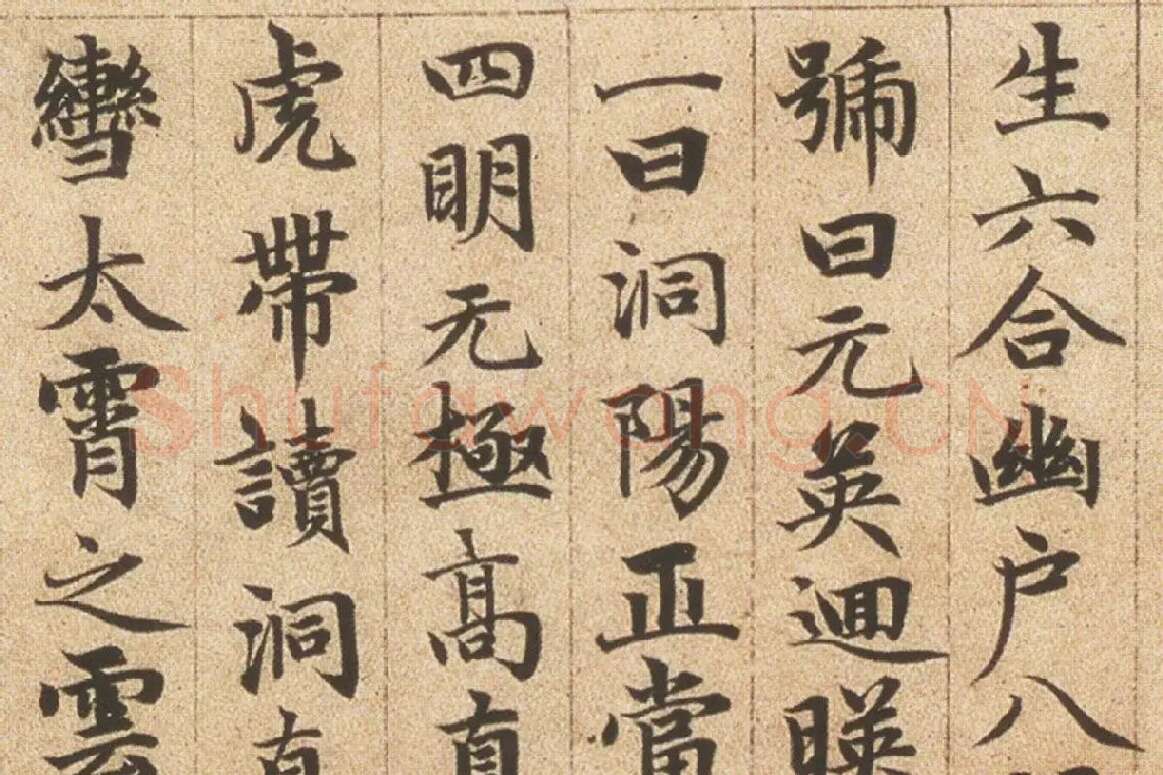 生六合幽户八
號曰元英迴暎
一曰洞陽正當
四明无極髙真
虎帶讀洞真
轡太霄之雲
Shufawang.CN